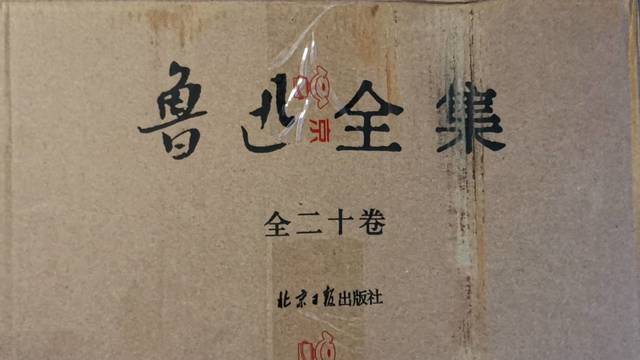 鲁迅全集
京
全二十卷
北京日报出版社